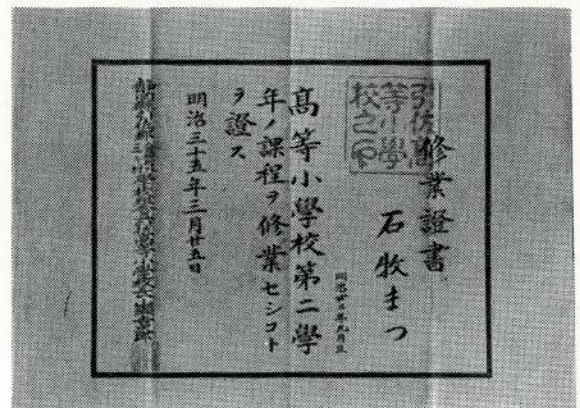 修業證書
石牧まつ
明治廿二年九月生
高等小學校第二學
年ノ課程ヲ修業セシコト
ヲ證ス
明治三十五年三月廿五日
引佐高
等小學
校之印